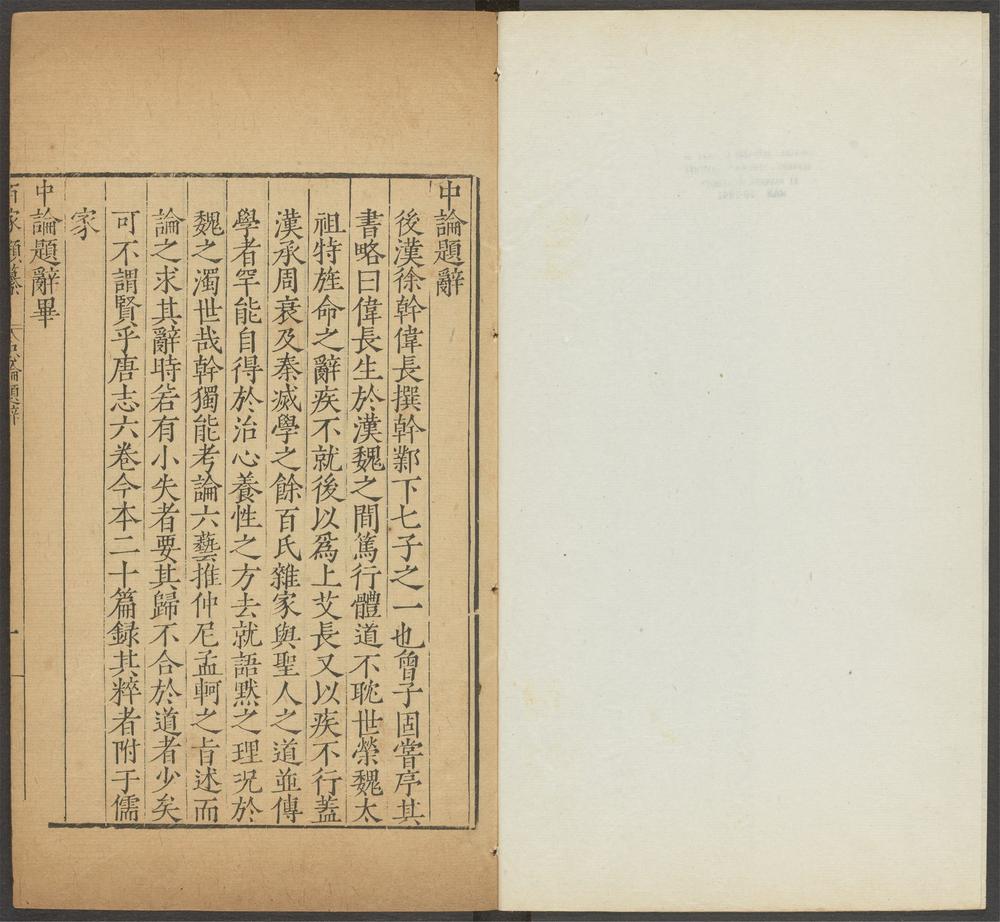 中論題辭
後漢徐幹偉長撰幹鄴下七子之一也曾子固嘗序其
書略曰偉長生於漢魏之間篤行體道不耽世榮魏太
祖特旌命之辭疾不就後以爲上艾長又以疾不行蓋
漢承周衰及秦滅學之餘百氏雜家與聖人之道並傳
學者罕能自得於治心養性之方去就語默之理况於
魏之濁世哉幹獨能考論六藝推仲尼孟軻之旨述而
論之求其辭時若有小失者要其歸不合於道者少矣
可不謂賢乎唐志六卷今本二十篇録其粹者附于儒
家
中論題辭畢